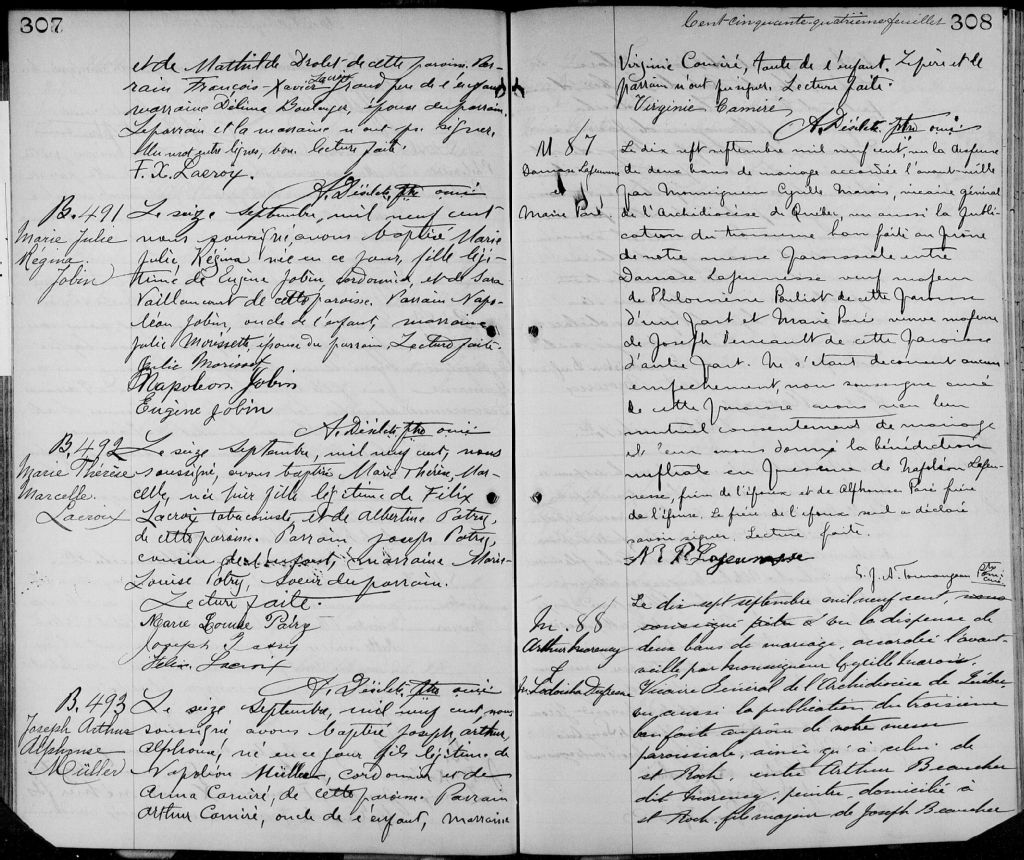 307
et de Mathilde Drolet de cette paroisse. Par-
rain François-Xavier Lacroix grand père de l'enfant
marraine Délima Boulanger, épouse du parrain.
Le parrain et la marraine n'ont pu signer.
Un mot entre lignes, bon. Lecture faite.
F. X. Lacroix
A. Désilets, ptre curé
B. 491
Marie Julie
Régina
Jobin
Le seize Septembre, mil neuf cent
nous soussigné, avons baptisé Marie
Julie Régina née en ce jour, fille légi-
time de Eugène Jobin, cordonnier, et de Sara
Vaillancourt de cette paroisse. Parrain Napo-
léon Jobin, oncle de l'enfant, marraine
Julie Morissette épouse du parrain. Lecture faite.
Julie Morisset
Napoléon Jobin
Eugène Jobin
A. Désilets, ptre curé
B. 492
Marie Thérèse
Marcelle
Lacroix
Le seize Septembre, mil neuf cent, nous
soussigné, avons baptisé Marie Thérèse Mar-
celle, née hier fille légitime de Félix
Lacroix tabaconiste, et de Albertine Patry,
de cette paroisse. Parrain Joseph Patry,
cousin de l'enfant, marraine Marie-
Louise Patry, soeur du parrain.
Lecture faite.
Marie Louise Patry
Joseph Patry
Félix Lacroix
A. Désilets, ptre curé
B. 493
Joseph Arthur
Alphonse
Müller
Le seize Septembre, mil neuf cent, nous
soussigné avons baptisé Joseph Arthur
Alphonse, né en ce jour fils légitime de
Napoléon Müller, cordonnier et de
Anna Camiré, de cette paroisse. Parrain
Arthur Camiré, oncle de l'enfant, marraine
Cent cinquante-quatrième feuillet 308
Virginie Camiré, tante de l'enfant. Le père et le
parrain n'ont pu signer. Lecture faite.
Virginie Camiré
A. Désilets, ptre curé
M 87
Damase Lajeunesse
et
Marie Paré
Le dix sept septembre mil neuf cent, vu la dispense
de deux bans de mariage accordée l'avant-veille
par Monseigneur Cyrille Marois, vicaire général
de l'Archidiocèse de Québec, vu aussi la publi-
cation du troisième ban faite au prône
de notre messe paroissiale entre
Damase Lajeunesse veuf majeur
de Philomène Pouliot de cette paroisse
d'une part et Marie Paré veuve majeure
de Joseph Perreault de cette paroisse
d'autre part. Ne s'étant découvert aucun
empêchement, nous soussigné curé
de cette paroisse avons reçu leur
mutuel consentement de mariage
et leur avons donné la bénédiction
nuptiale en présence de Napoléon Lajeu-
nesse, frère de l'époux et de Alphonse Paré frère
de l'épouse. Le frère de l'époux seul a déclaré
savoir signer. Lecture faite.
N. P. Lajeunesse
M. 88
Arthur Morency
&
Le dix-sept septembre mil neuf cent, nous
soussigné prêtre vu la dispense de
deux bans de mariage, accordée l'avant-
veille par Monseigneur Cyrille Marois,
Vicaire Général de l'Archidiocèse de Québec,
vu aussi la publication du troisième
ban faite au prône de notre messe
paroissiale, ainsi qu'à celui de
St Roch, entre Arthur Beaucher
dit Morency, peintre, domicilié à
St Roch, fils majeur de Joseph Beaucher